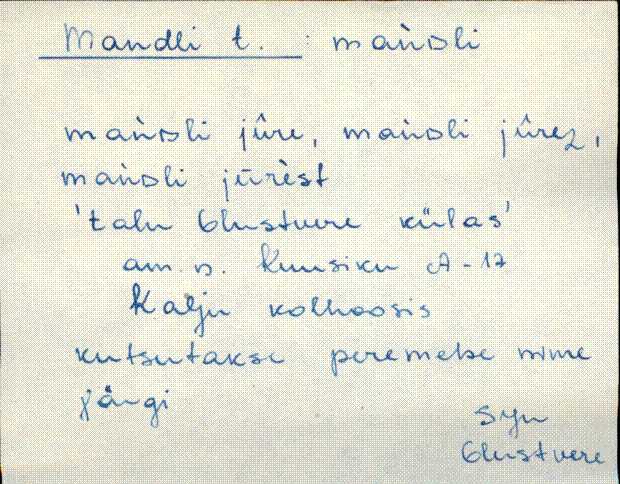 Mandli t. : mańDli
mańDli jûre, mańDli jûrez,
mańDli jūrèst
'talu Olustvere külas'
am. n. Kuusiku A-17
Kalju kolhoosis
kutsutakse peremehe nime
järgi
SJn
Olustvere